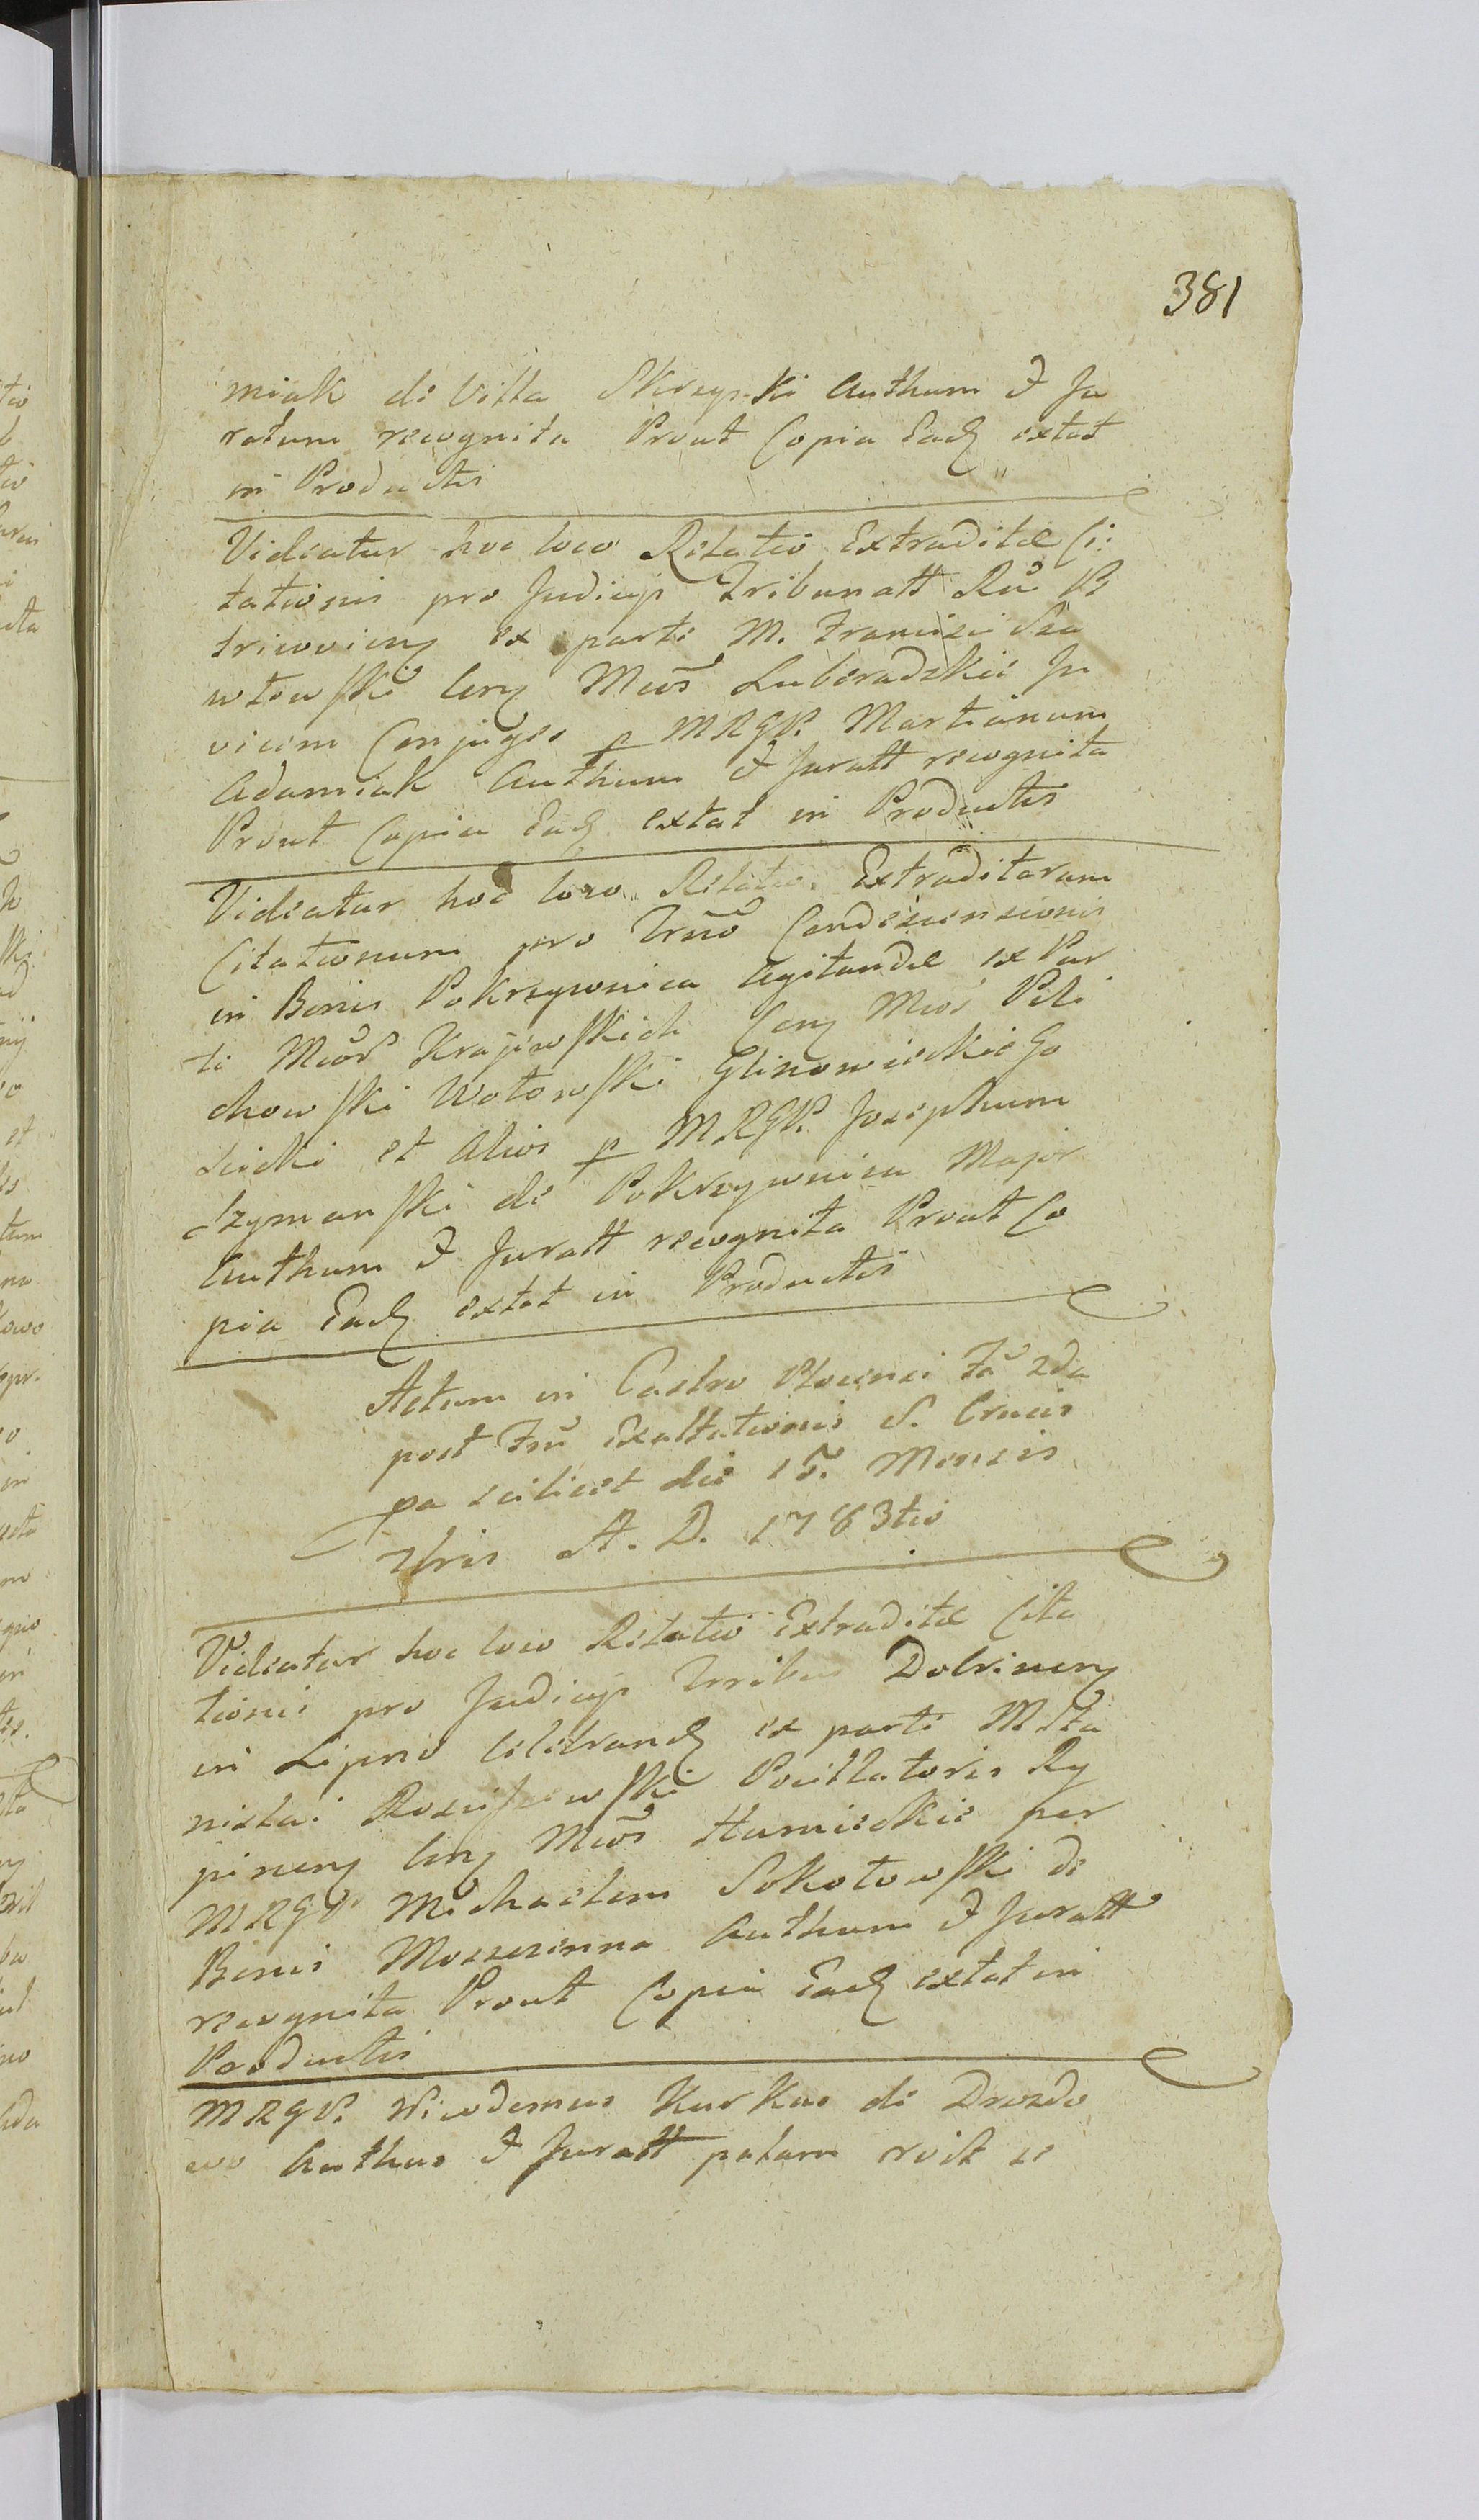 381
miak de Villa Skrzynki Authum & Ju
ratum recognita Prout Copia Eadz extat
in Productis
Videatur hoc loco Relatio Extraditæ Ci:
tationis pro Judicijs Tribunatt Rni P
tricovienz ex parte M. Francisci Sza
włowski Conz Mcos Luberadzkie In
vicem Conjuges p MRGP. Martianum
Adamiak Authum & Juratt recognita
Prout Copia Eadz extat in Productis
Videatur hoc loco Relatio Extraditarum
Citationum pro Trno Condescensionis
in Bonis Pokrzywnica Agitandæ ex Par
te Mcor Krajewskich Conz Mcos Peli
chowski Wołowski Glinowieckie Go
scicki et Alios p MRGP. Josephum
Szymanski de Pokrzywnica Major
Authum & Juratt recognita Prout Co
pia Eadz extat in Productis
Actum in Castro Plocensi Fa 2da
post Fm Exaltationis S. Crucis
pa scilicet die 15. Mensis
7bris A. D. 1783tio
Videatur hoc loco Relatio Extraditæ Cita
tionis pro Judicijs Trribus Dobrinenz
in Lipno Celebrandz ex parte M Sta
nislai Rosciszewski Pocillatoris Ry
pinenz Conz Mcos Humieckie per
MRGP Michaelem Sokołowski de
Bonis Moszczonna Authum & Juratt
recognita Prout Copia Eadz extat in
Productis
MRGP. Nicodemus Kurkus de Drozdo
wo Authus & Juratt palam roit se